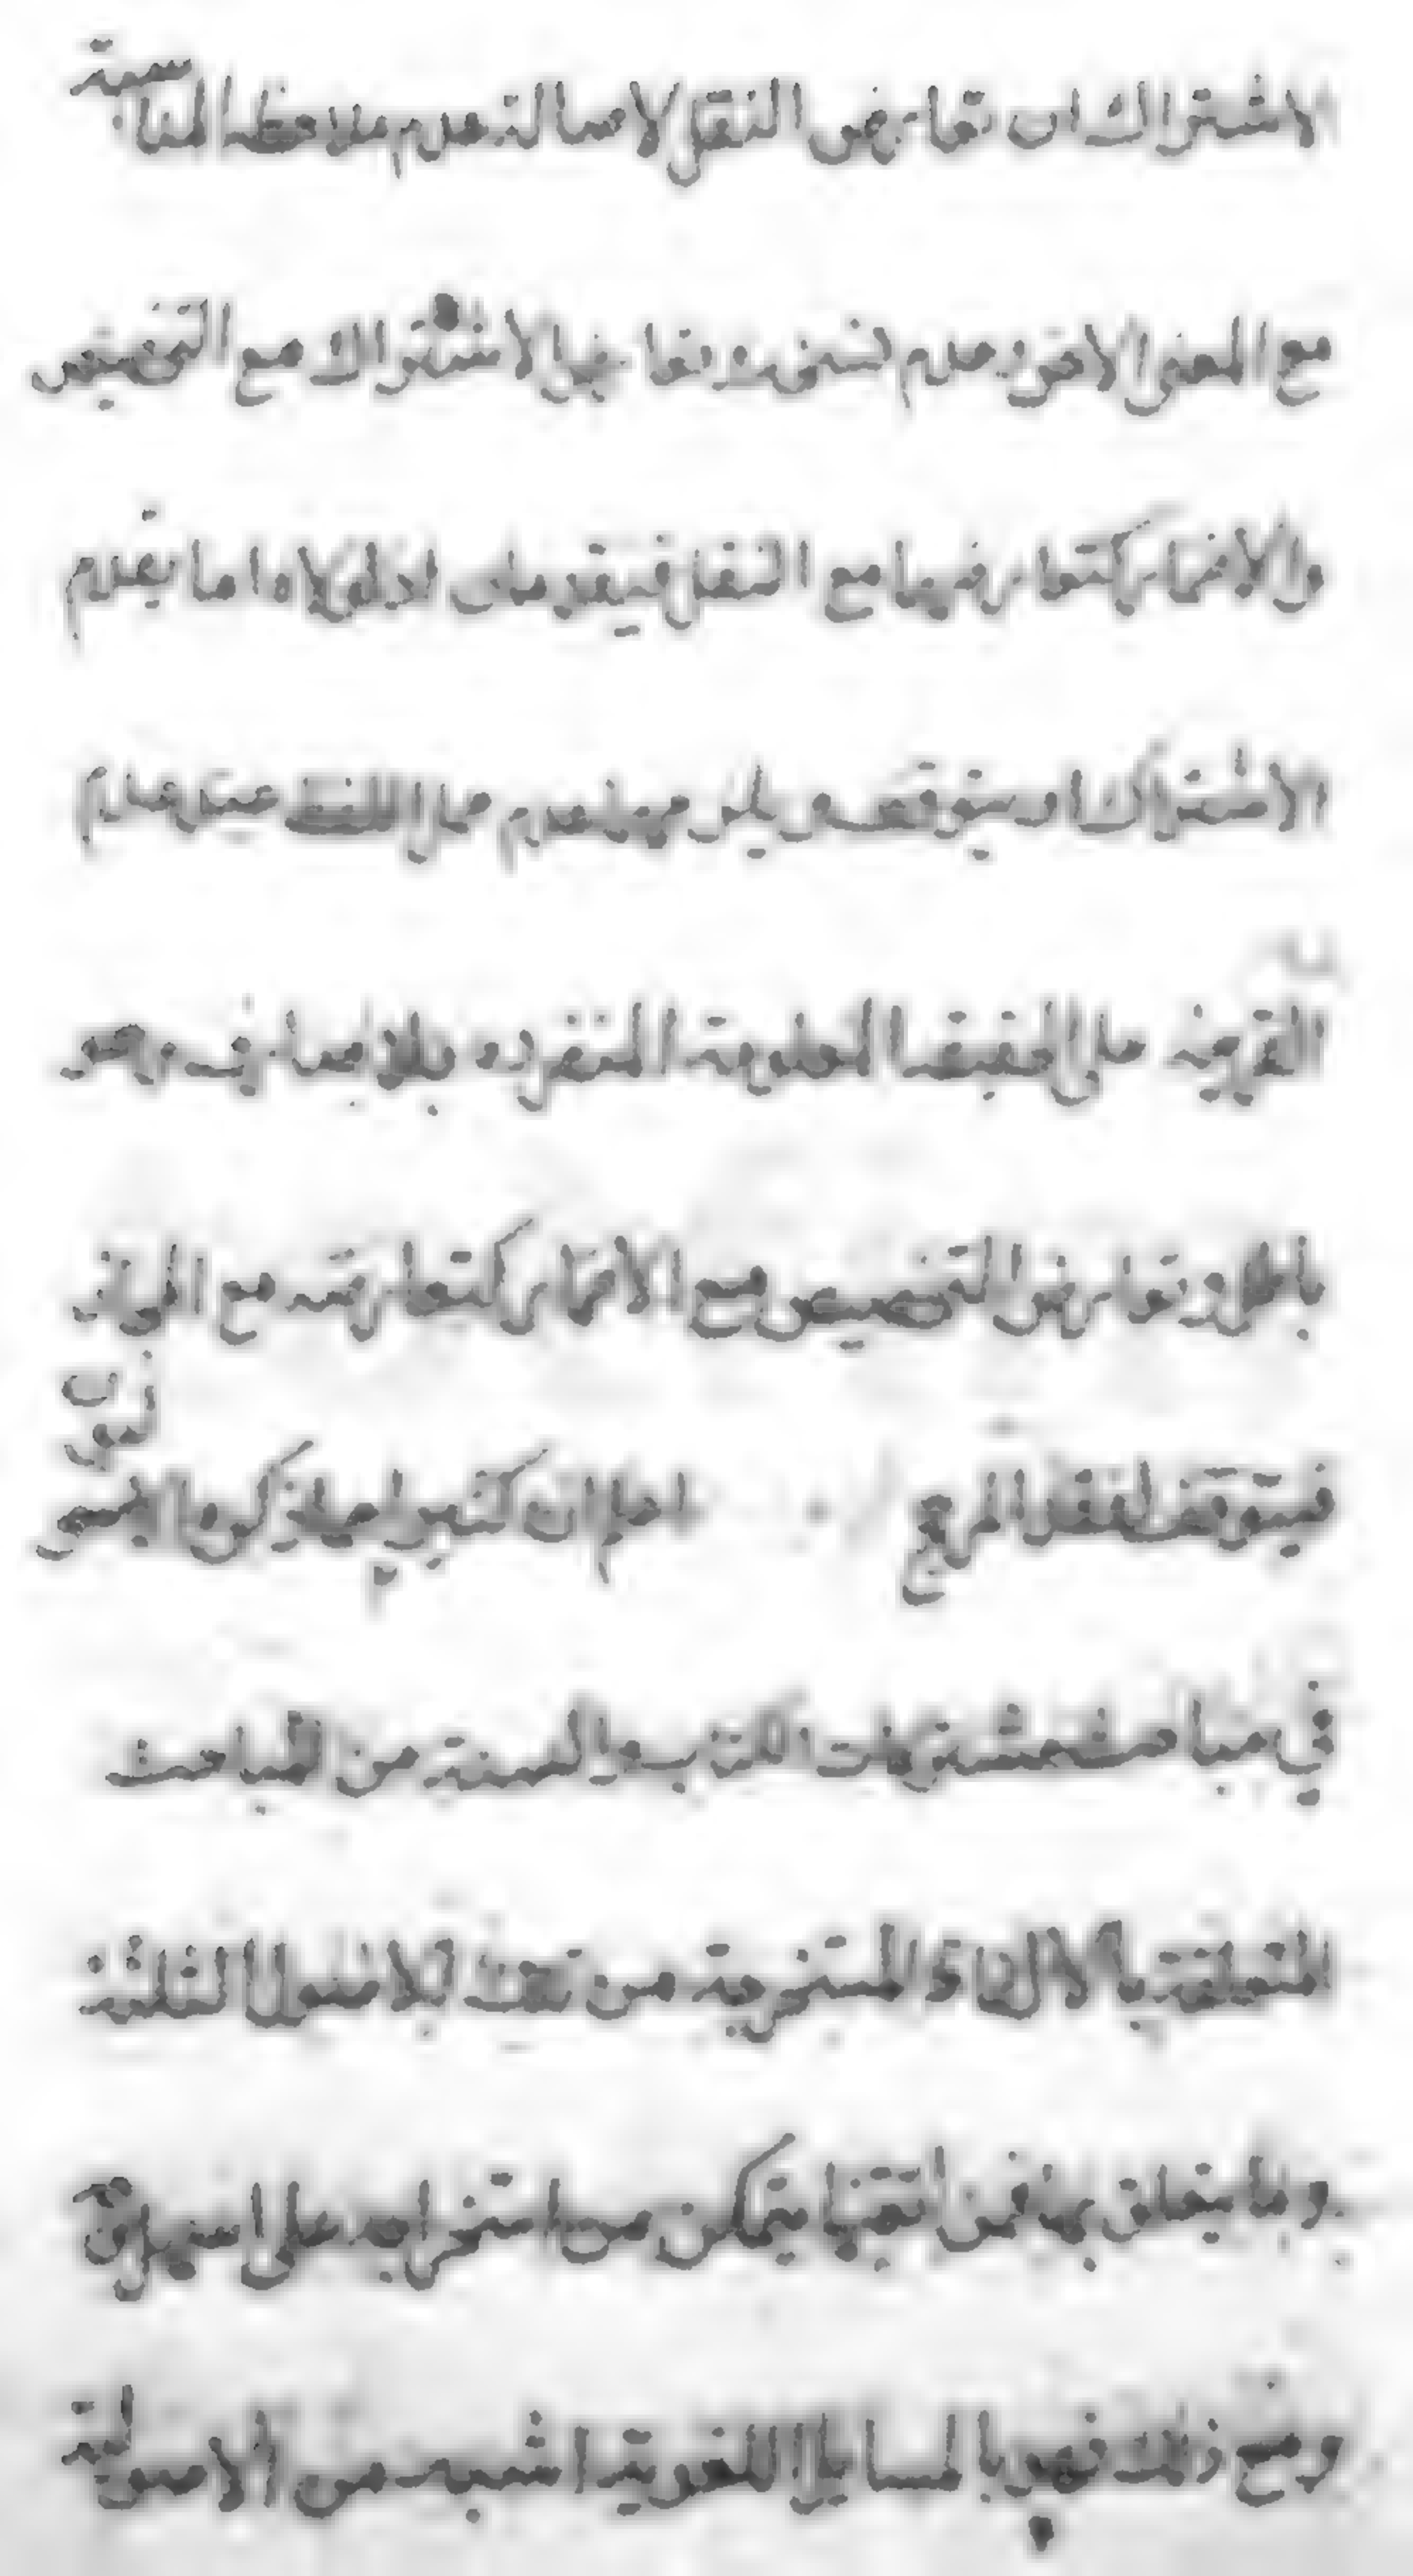 الاشتراك ان تعارض النقل لاصالة عدم ملاحظه المناسبة
مع المعنى الاخر وعدم وتعارض الاشتراك مع التخصيص
والاضمار كتعارضهما مع النقل فيقدمان اذ اولا اما بقدم
الاشتراك او يتوقف و يلى عدم حمل اللفظ عند عدم
القرينة على الحقيقة المعلومة المنفرده بلا معارض وهو
باطل وتعارض التخصيص مع الاضمار كتعارضه مع المجاز
فيتوقف لفقد المرجح اعلم ان كثير مما يذكره الاصوليون
في مباحث مشتركات الكتاب والسنة من المباحث
المتعلقة بالالفاظ المستخرجة من تلك الاصول الثلثة
وما يتعلق بها فمن اتقنها يتمكن من استخراجه على اسهل وجه
ومع ذلك فهو بالمسايل اللغوية اشبه من الاصولية